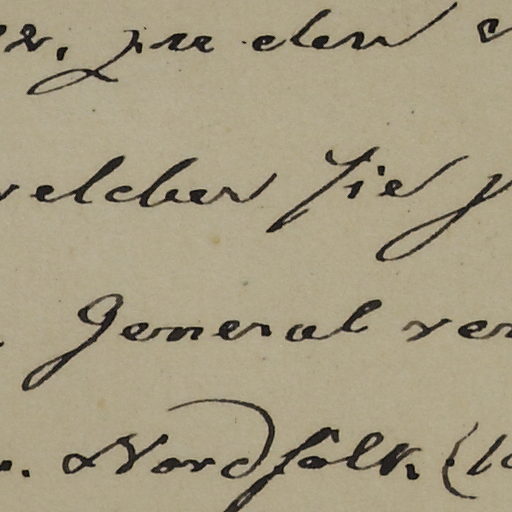 zu den
welcher Sie
General ver
Nordfolk. (1